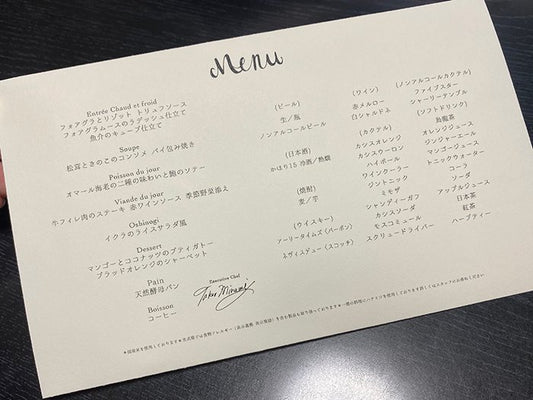 Menu
Entrée Chaud et froid
フォアグラとリゾット トリュフソース
フォアグラムースのラデッシュ仕立て
魚介のキューブ仕立て
Soupe
松茸ときのこのコンソメ パイ包み焼き
Poisson du jour
オマール海老の二種の味わいと鮑のソテー
Viande du jour
牛フィレ肉のステーキ 赤ワインソース 季節野菜添え
Oshinogi
イクラのライスサラダ風
Dessert
マンゴーとココナッツのプティガトー
ブラッドオレンジのシャーベット
Pain
天然酵母パン
Boisson
コーヒー
Executive Chef
(ビール)
生/瓶
ノンアルコールビール
(日本酒)
かほり15 冷酒/熱燗
(焼酎)
麦/芋
(ウイスキー)
アーリータイムズ(バーボン)
ネヴィスデュー(スコッチ)
(ワイン)
赤メルロー
白シャルドネ
(カクテル)
カシスオレンジ
カシスウーロン
ハイボール
ワインクーラー
ジントニック
ミモザ
シャンディーガフ
カシスソーダ
モスコミュール
スクリュードライバー
(ノンアルコールカクテル)
ファイブスター
シャーリーテンプル
(ソフトドリンク)
烏龍茶
オレンジジュース
ジンジャーエール
マンゴージュース
トニックウォーター
コーラ
ソーダ
アップルジュース
日本茶
紅茶
ハーブティー